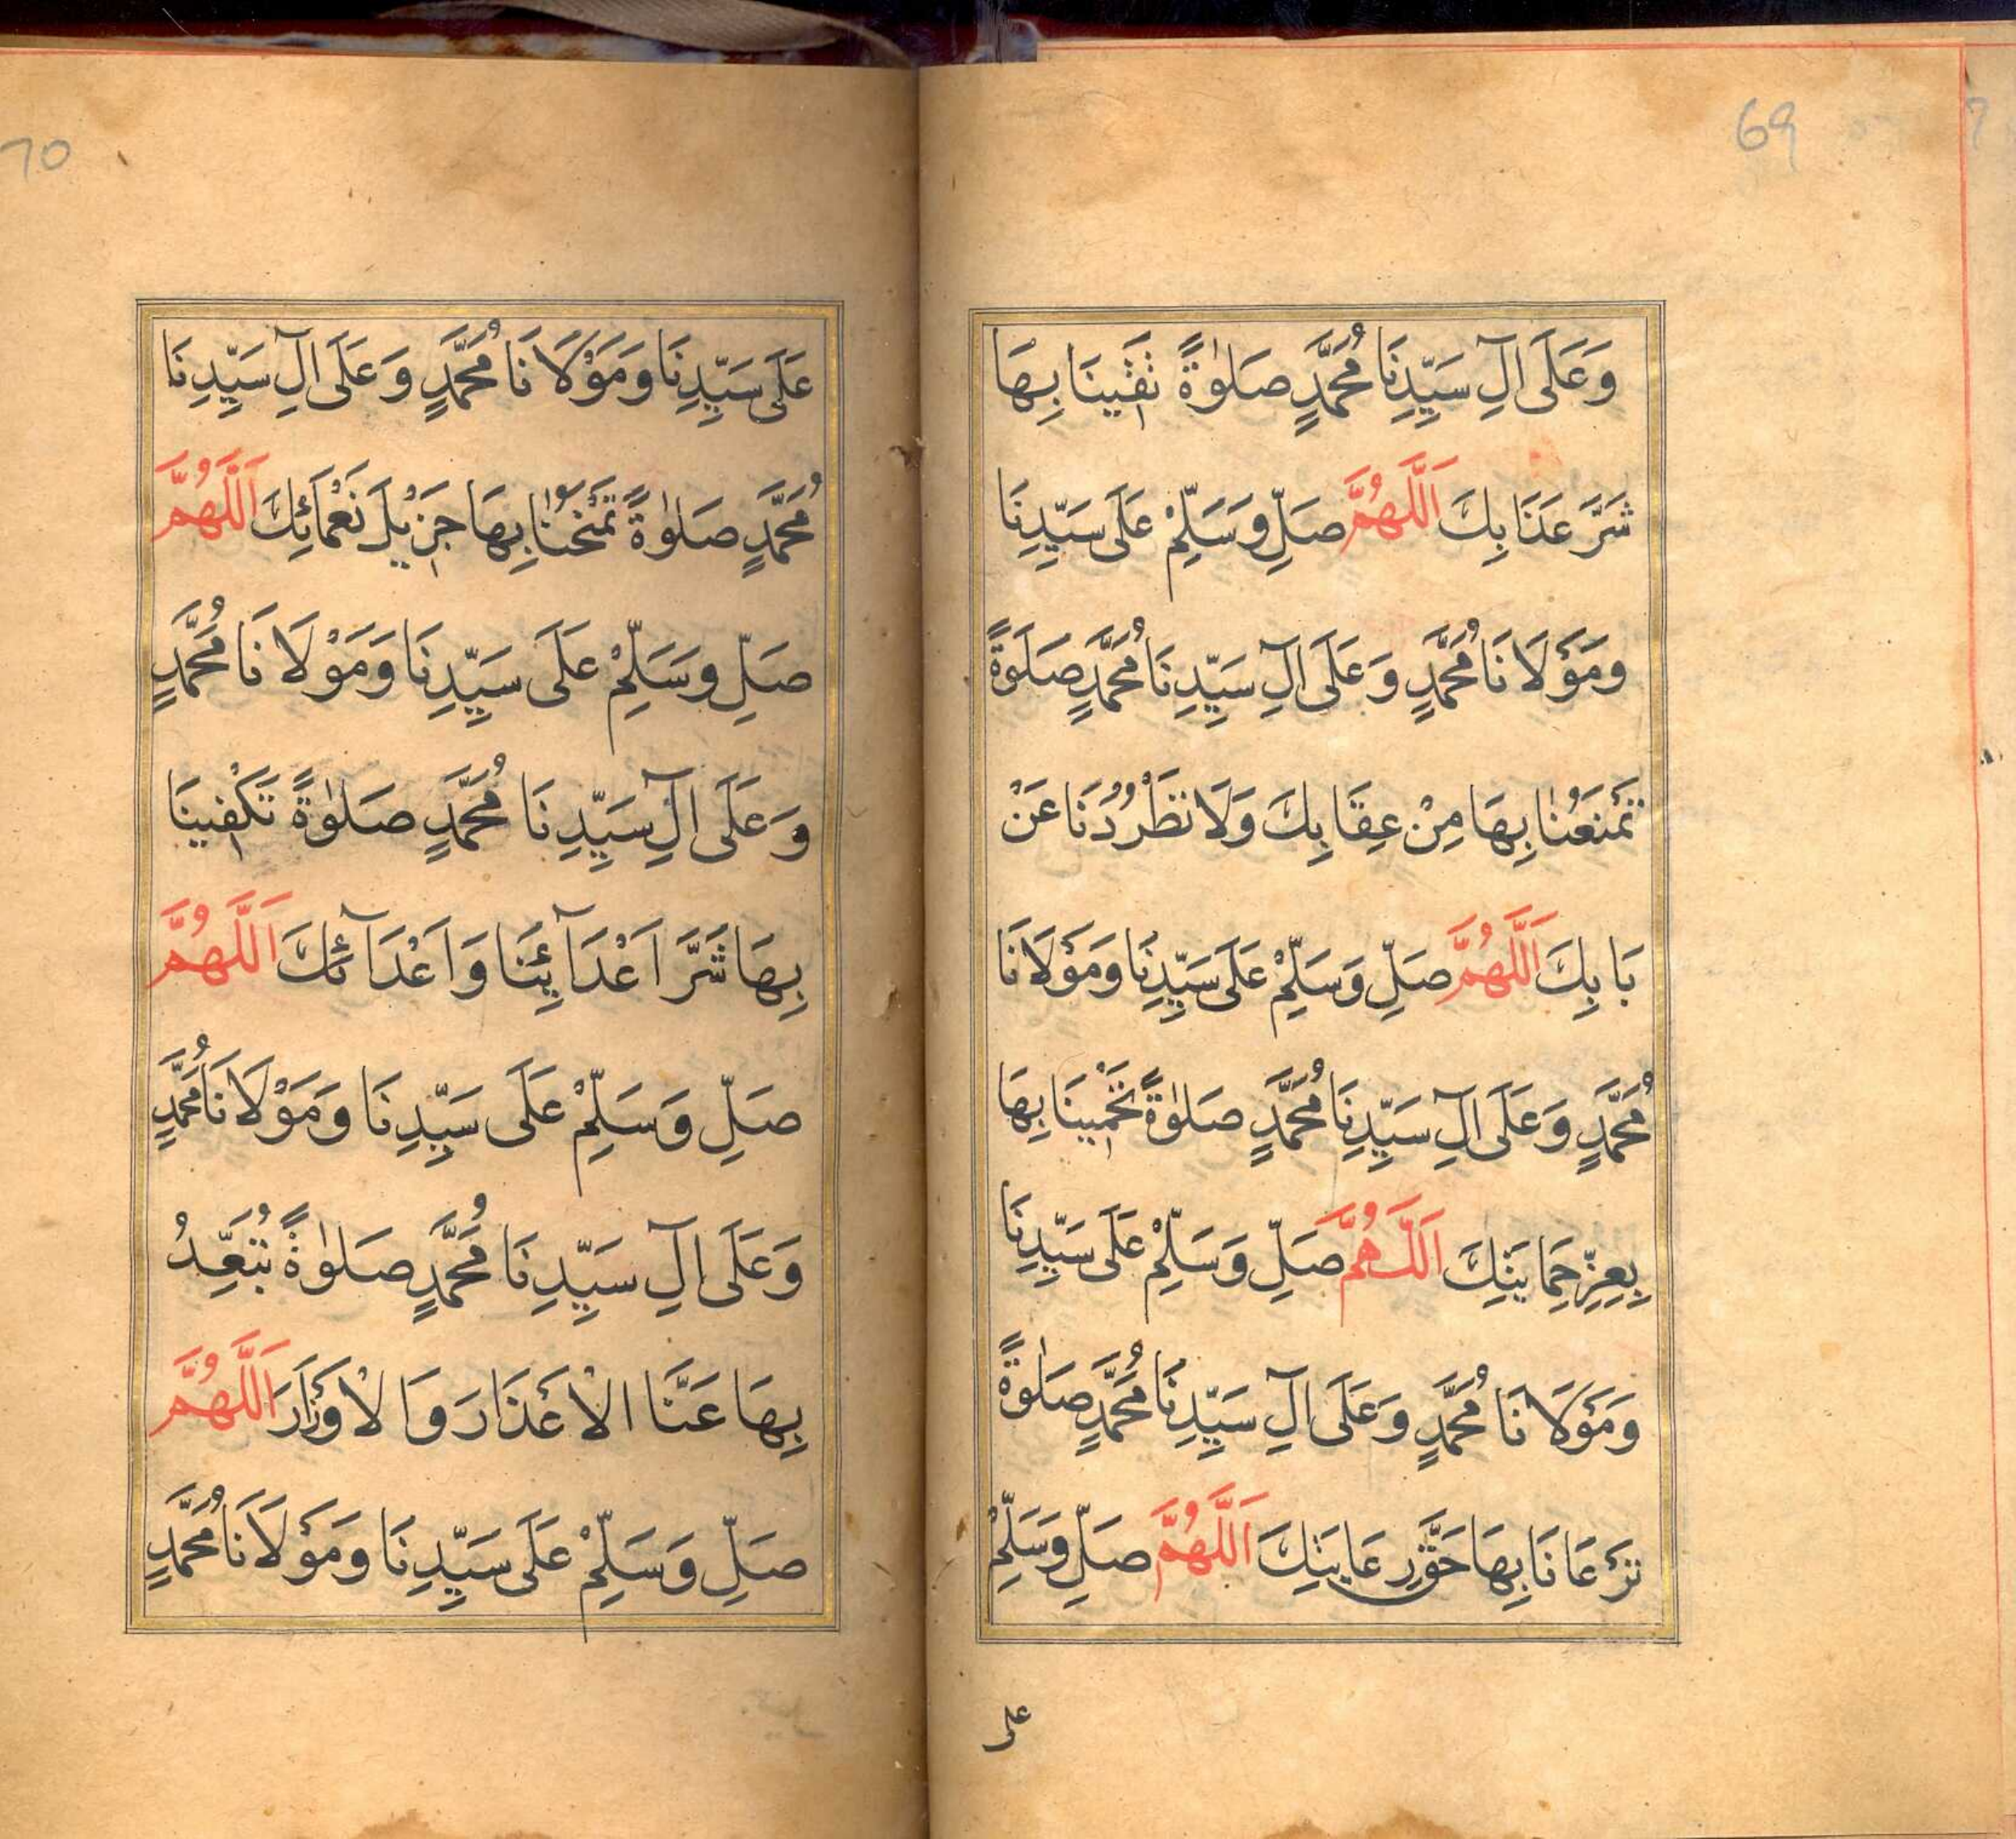 69
وَعَلَى اٰلِ سَيِّدِنَا مُحَمَّدٍ صَلٰوةً تَقِينَا بِهَا
شَرَّ عَذَابِكَ اَللّٰهُمَّ صَلِّ وَسَلِّمْ عَلَى سَيِّدِنَا
وَمَوْلَانَا مُحَمَّدٍ وَعَلَى اٰلِ سَيِّدِنَا مُحَمَّدٍ صَلٰوةً
تَمْنَعُنَا بِهَا مِنْ عِقَابِكَ وَلَا تَطْرُدُنَا عَنْ
بَابِكَ اَللّٰهُمَّ صَلِّ وَسَلِّمْ عَلَى سَيِّدِنَا وَمَوْلَانَا
مُحَمَّدٍ وَعَلَى اٰلِ سَيِّدِنَا مُحَمَّدٍ صَلٰوةً تَحْمِينَا بِهَا
بِعِزِّ حِمَايَتِكَ اَللّٰهُمَّ صَلِّ وَسَلِّمْ عَلَى سَيِّدِنَا
وَمَوْلَانَا مُحَمَّدٍ وَعَلَى اٰلِ سَيِّدِنَا مُحَمَّدٍ صَلٰوةً
تَرْعَانَا بِهَا حَقَّ رِعَايَتِكَ اَللّٰهُمَّ صَلِّ وَسَلِّمْ
على
70
عَلَى سَيِّدِنَا وَمَوْلَانَا مُحَمَّدٍ وَعَلَى اٰلِ سَيِّدِنَا
مُحَمَّدٍ صَلٰوةً تَمْنَحُنَا بِهَا جَزِيْلَ نَعْمَائِكَ اَللّٰهُمَّ
صَلِّ وَسَلِّمْ عَلَى سَيِّدِنَا وَمَوْلَانَا مُحَمَّدٍ
وَعَلَى اٰلِ سَيِّدِنَا مُحَمَّدٍ صَلٰوةً تَكْفِينَا
بِهَا شَرَّ اَعْدَآئِنَا وَاَعْدَآئِكَ اَللّٰهُمَّ
صَلِّ وَسَلِّمْ عَلَى سَيِّدِنَا وَمَوْلَانَا مُحَمَّدٍ
وَعَلَى اٰلِ سَيِّدِنَا مُحَمَّدٍ صَلٰوةً تُبَعِّدُ
بِهَا عَنَّا الْاَغْذَارَ وَالْاَوْزَارَ اَللّٰهُمَّ
صَلِّ وَسَلِّمْ عَلَى سَيِّدِنَا وَمَوْلَانَا مُحَمَّدٍ